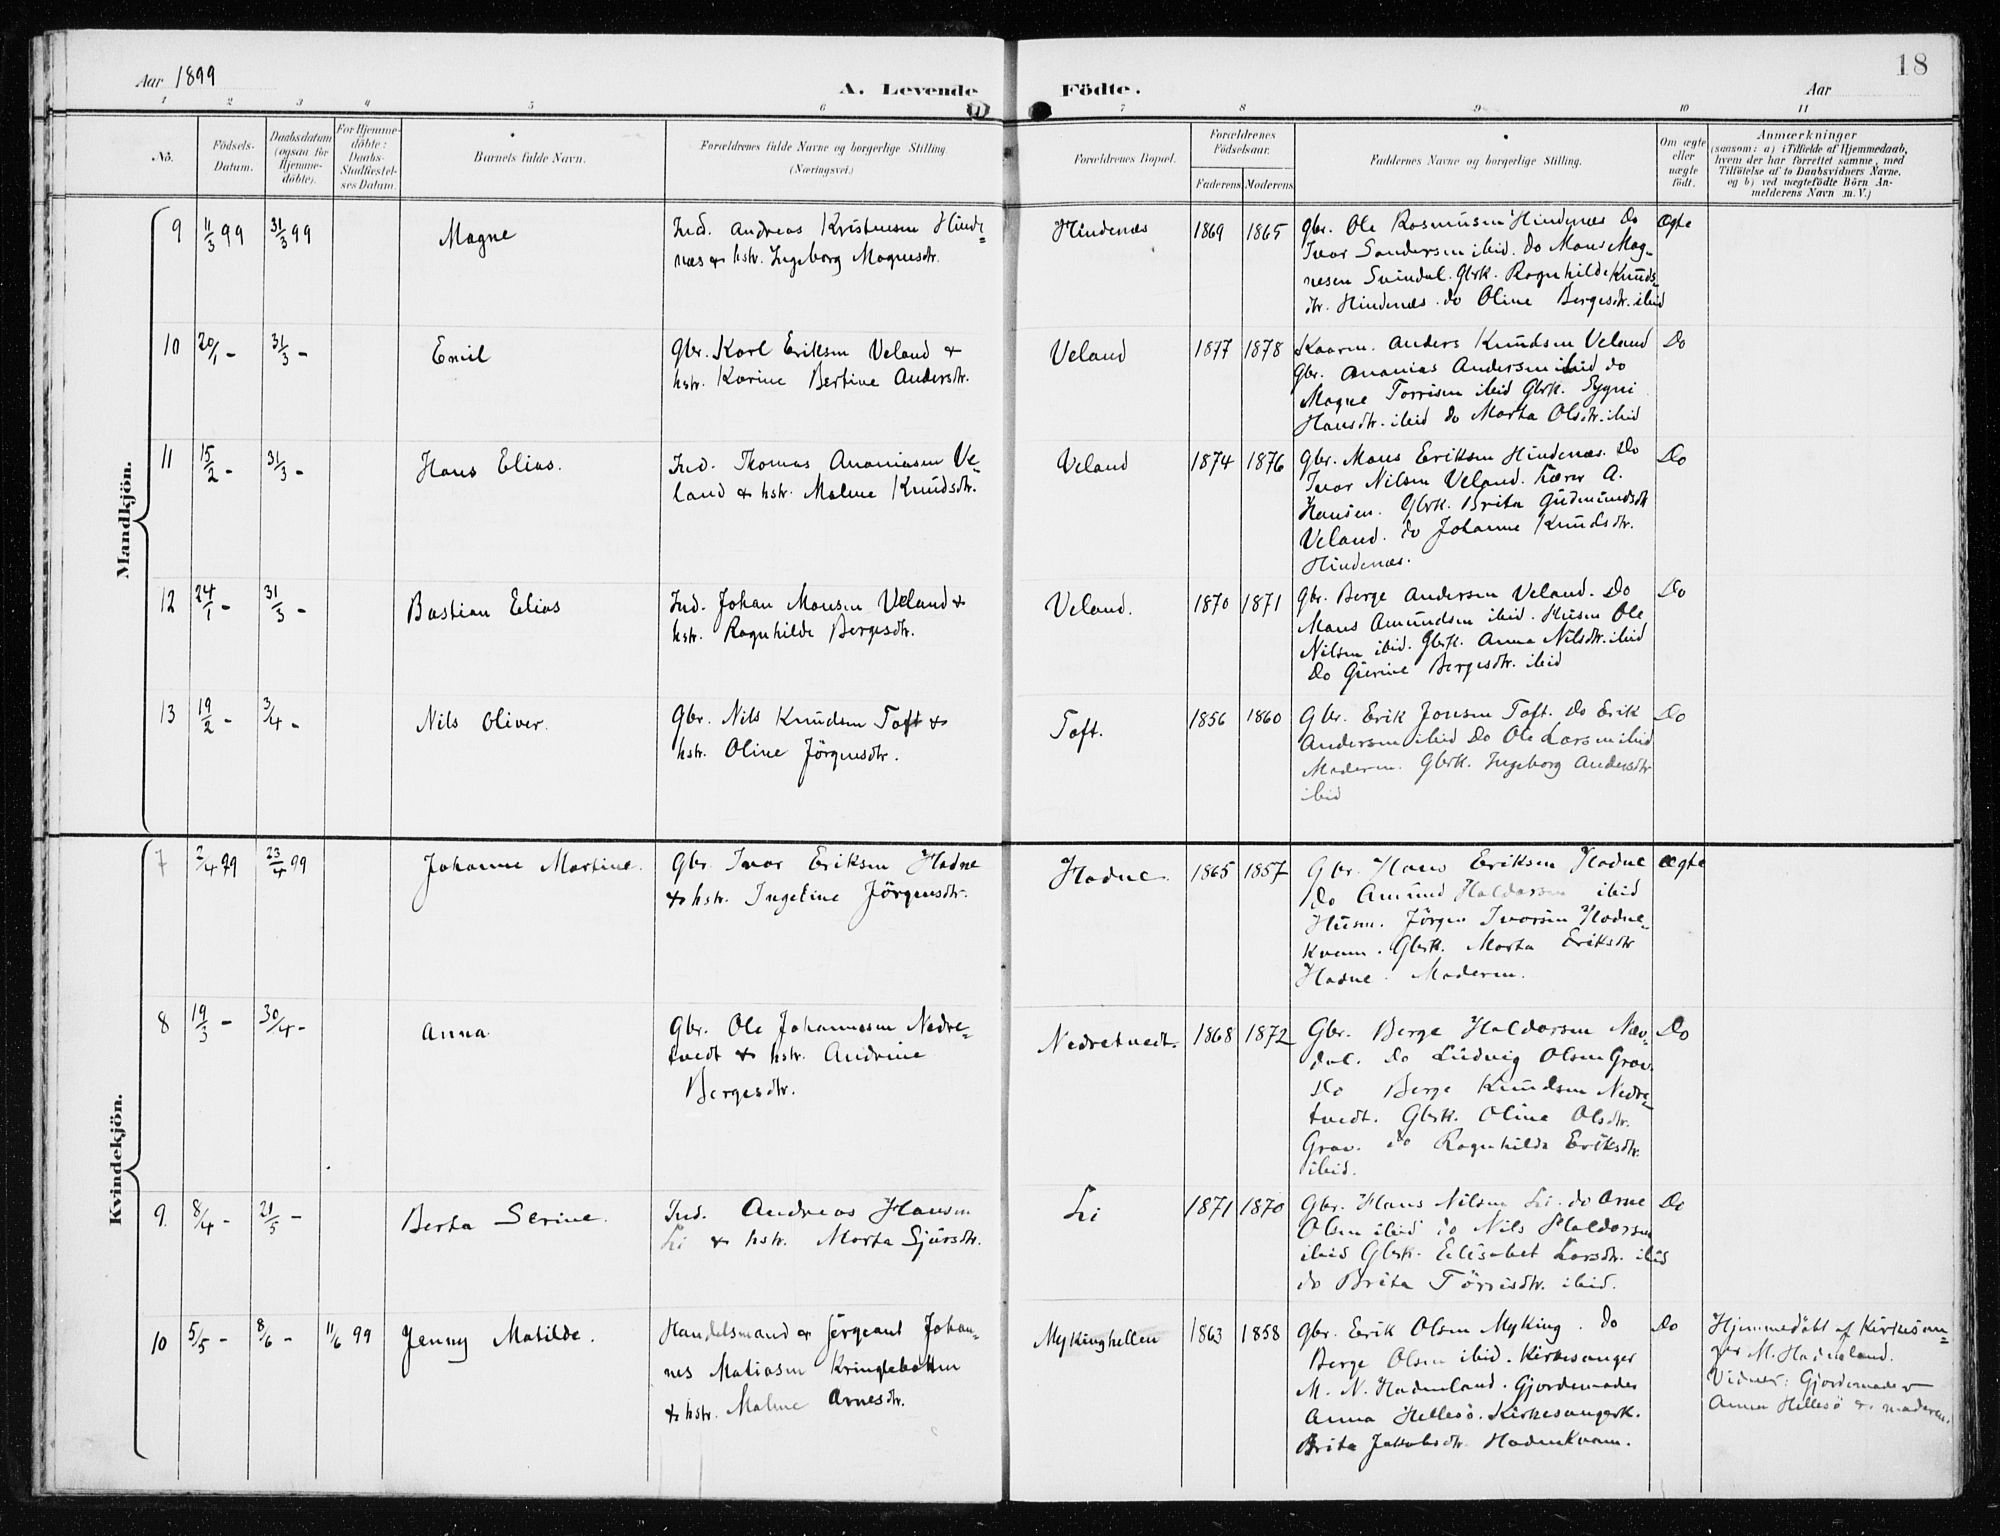 18
Aar 1899
A. Levende
Födte.
Aar
1 2 3 4 5 6 7 8 9 10 11
No.
Födsels-
Datum.
Daabsdatum
(ogsaa for
Hjemme-
döbte).
For Hjemme-
döbte:
Daabs-
Stadfæstel-
ses Datum.
Barnets fulde Navn.
Forældrenes fulde Navne og borgerlige Stilling.
(Næringsvei.)
Forældrenes Bopæl.
Forældrenes
Födselsaar.
Faderens
Moderens
Faddernes Navne og borgerlige Stilling.
Om ægte
eller
uægte
födt.
Anmærkninger
(saasom: a) i Tilfælde af Hjemmedaab,
hvem der har forrettet samme, med
Tilföielse af to Daabsvidners Navne.
og b) ved uægtefödte Börn An-
melderens Navn m. V.)
Mandkjön.
9 11/3 99 31/3 99
Magne
Ind. Andreas Kristensen Hinde-
næs & hstr. Ingeborg Magnesdtr.
Hindenæs
1869 1865
Gbr. Ole Rasmusen Hindenæs Do
Ivar Sandersen ibid. Do Mons Mag-
nesen Svindal. Gbrk. Ragnhilde Knuds-
dtr. Hindenæs. do Oline Bergesdtr. ibid
Ægte
10 20/1 - 31/3 -
Emil
Gbr. Karl Eriksen Veland &
hstr. Karine Bertine Andersdtr.
Veland
1877 1878
Kaarm. Anders Knudsen Veland
Gbr. Ananias Andersen ibid do
Magne Torrisen ibid Gbrk. Sygni
Hansdtr. ibid do Marta Olsdtr. ibid
Do
11 15/2 - 31/3 -
Hans Elias.
Ind. Thomas Ananiasen Ve-
land & hstr. Malene Knudsdtr.
Veland
1874 1876
Gbr. Mons Eriksen Hindenæs. Do
Ivar Nilsen Veland. Lærer A.
Hansen. Gbrk. Brita Gudmundsdtr
Veland. do Johanne Knudsdtr.
Hindenæs.
Do
12 24/1 - 31/3 -
Bastian Elias
Ind. Johan Monsen Veland &
hstr. Ragnhilde Bergesdtr.
Veland.
1870 1871
Gbr. Berge Andersen Veland. Do
Mons Amundsen ibid. Husm Ole
Nilsen ibid. Gbrk. Anna Nilsdtr. ibid
Do Gurine Bergesdtr. ibid
Do
13 19/2 - 3/4 -
Nils Oliver.
Gbr. Nils Knudsen Toft &
hstr. Oline Jörgensdtr.
Toft.
1856 1860
Gbr. Erik Jonsen Toft. Do Erik
Andersen ibid Do Ole Larsen ibid
Moderen. Gbrk. Ingeborg Andersdtr
ibid
Do
Kvindekjön.
7 2/4 99 23/4 99
Johanne Martine.
Gbr. Ivar Eriksen Hodne
& hstr. Ingeline Jörgensdtr.
Hodne.
1865 1857
Gbr. Hans Eriksen Hodne
Do Amund Haldorsen ibid
Husm. Jörgen Ivarsen Hodne-
kvam. Gbrk. Marta Eriksdtr
Hodne. Moderen.
Ægte
8 19/3 - 30/4 -
Anna
Gbr. Ole Johannesen Nedre-
tvedt & hstr. Andrine
Bergesdtr.
Nedretvedt.
1868 1872
Gbr. Berge Haldorsen Næv-
dal. do Ludvig Olsen Grov.
Do Berge Knudsen Nedre-
tvedt. Gbrk. Oline Olsdtr.
Grov. do Ragnhilda Eriksdtr.
ibid.
Do
9. 8/4 - 21/5 -
Berta Serine.
Ind. Andreas Hansen
Li & hstr. Marta Sjursdtr.
Li
1871 1870
Gbr. Hans Nilsen Li. do Arne
Olsen ibid do Nils Haldorsen
ibid Gbrk. Elisabet Larsdtr. ibid
do Brita Törrisdtr. ibid.
Do
10 5/5 - 8/6 - 11/6 99
Jenny Matilde.
Handelsmand & sergeant Johan-
nes Matiasen Kringlebotten
& hstr. Malene Arnesdtr.
Mykinghellen
1863 1858
Gbr. Erik Olsen Myking. do
Berge Olsen ibid. Kirkesanger
M. N. Hodneland. Gjordemoder
Anna Hellesö. Kirkesangerk.
Brita Jakobsdtr. Hodnekvam.
Do
Hjemmedöbt af Kirkesan-
ger M. Hodneland.
Vidner: Gjordemoder
Anna Hellesö & moderen.